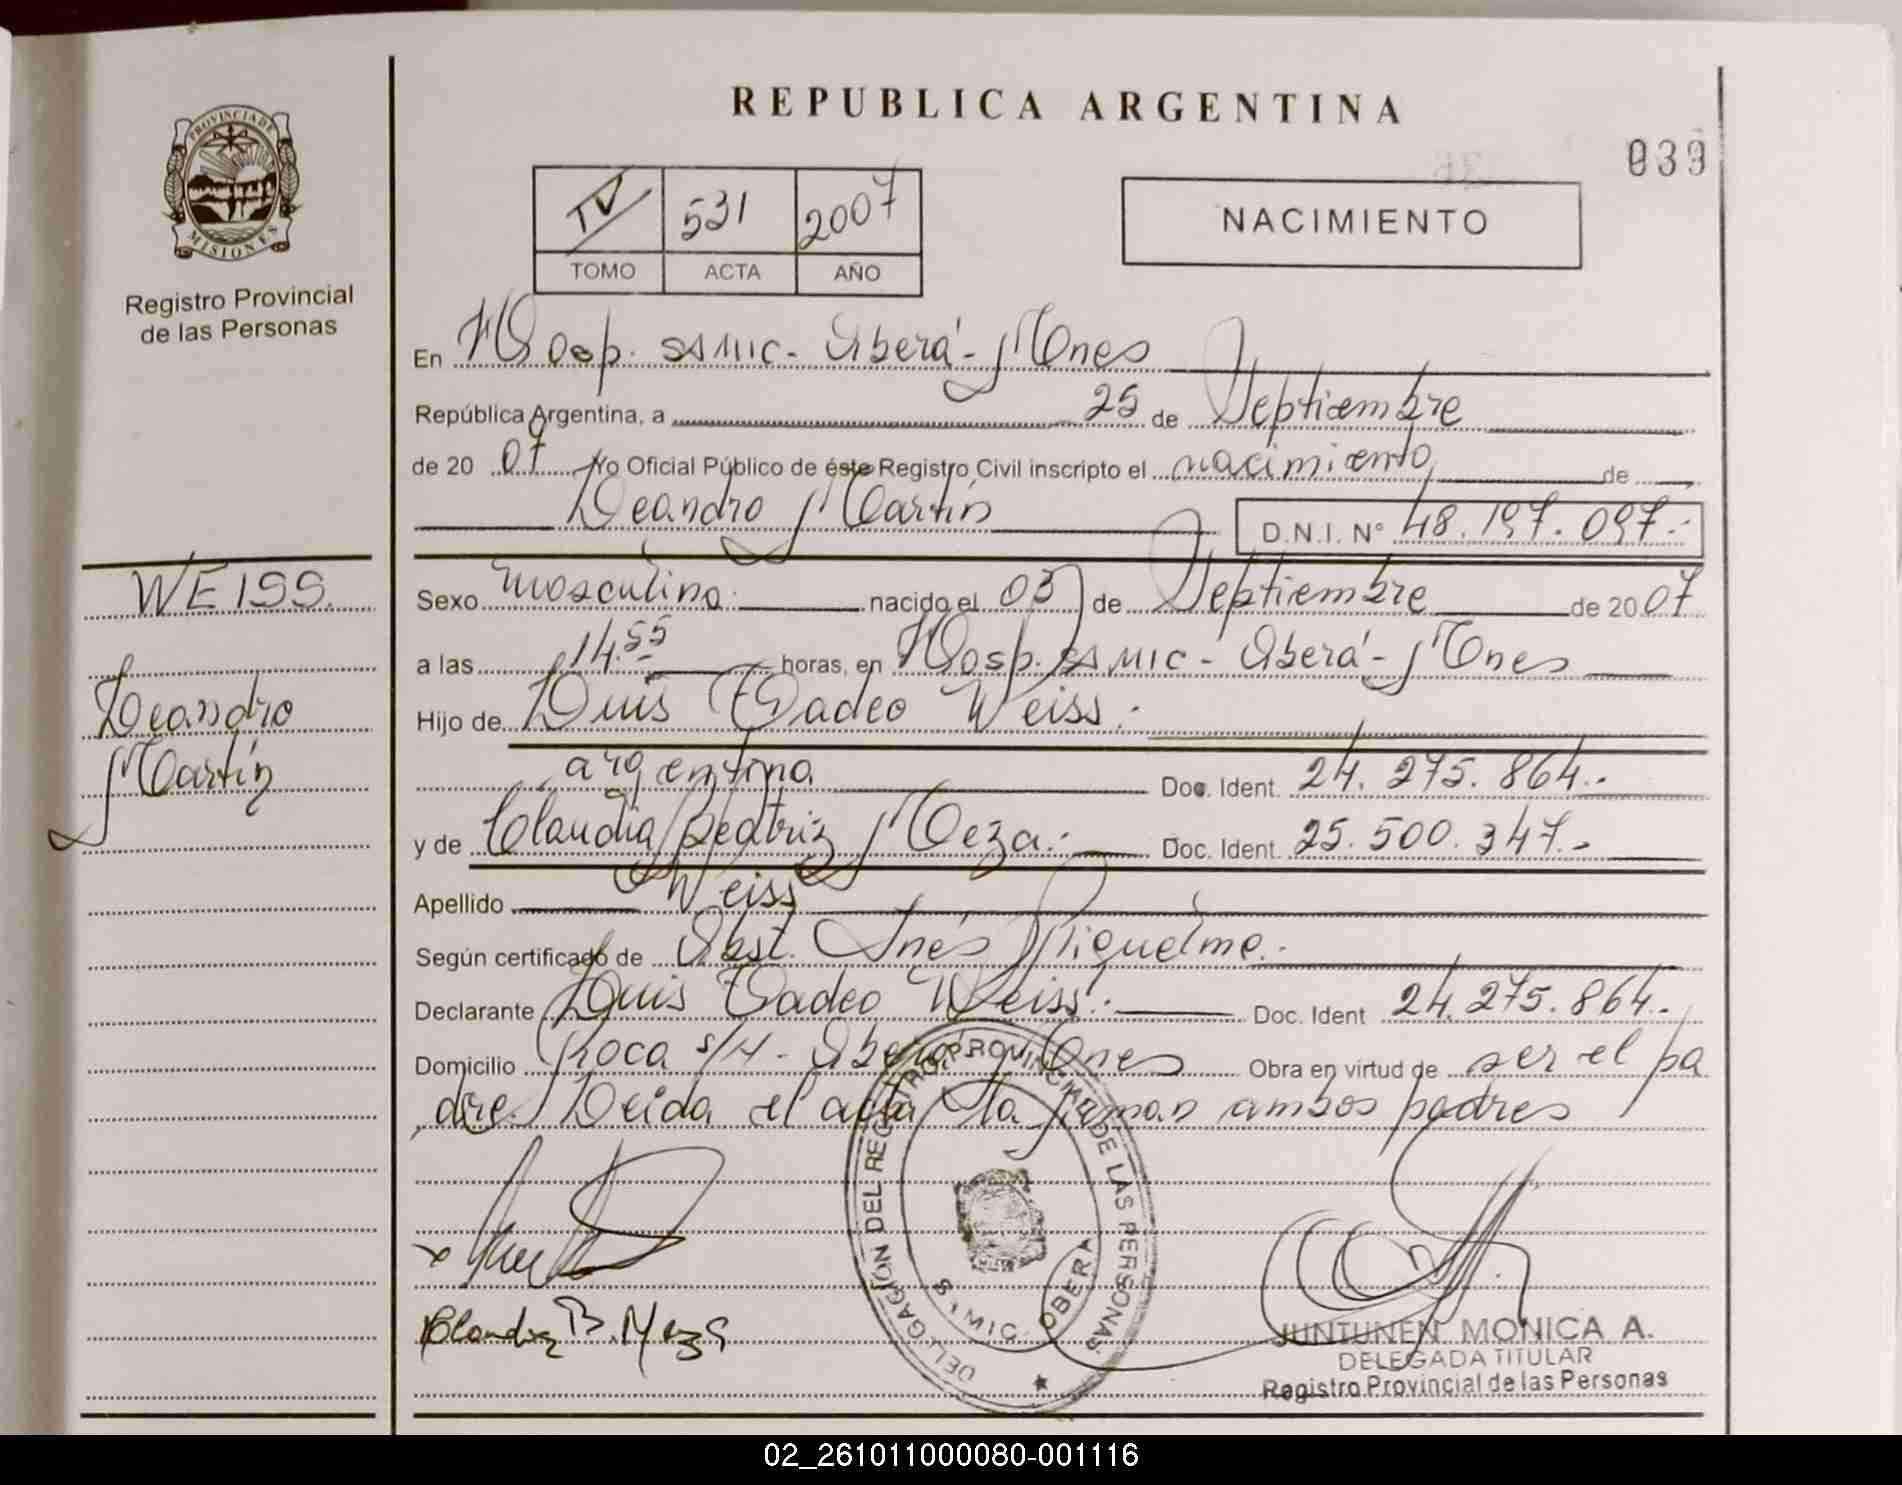 REPUBLICA ARGENTINA
039
PROVINCIA DE
MISIONES
Registro Provincial
de las Personas
TV 531 2007
TOMO ACTA AÑO
NACIMIENTO
En Hosp. SAMIC - Oberá - Mnes
República Argentina, a 25 de Septiembre
de 20 07 Yo Oficial Público de éste Registro Civil inscripto el nacimiento de
Leandro Martín D.N.I. N° 48.197.097.-
WEISS
Leandro
Martín
Sexo masculino. nacido el 03 de Septiembre de 2007
a las 14.55 horas, en Hosp. SAMIC - Oberá - Mnes
Hijo de Luis Tadeo Weiss.-
argentina Doc. Ident. 24.275.864.-
y de Claudia Beatriz Meza.- Doc. Ident. 25.500.347.-
Apellido Weiss
Según certificado de Obst. Inés Riquelme.-
Declarante Luis Tadeo Weiss.- Doc. Ident 24.275.864.-
Domicilio Roca s/N - Oberá Mnes Obra en virtud de ser el pa
dre. Leida el acta, la firman ambos padres
DELEGACIÓN DEL REGISTRO PROVINCIAL DE LAS PERSONAS
SAMIC OBERA
Claudia B. Meza
JUNTUNEN MONICA A.
DELEGADA TITULAR
Registro Provincial de las Personas
02_261011000080-001116